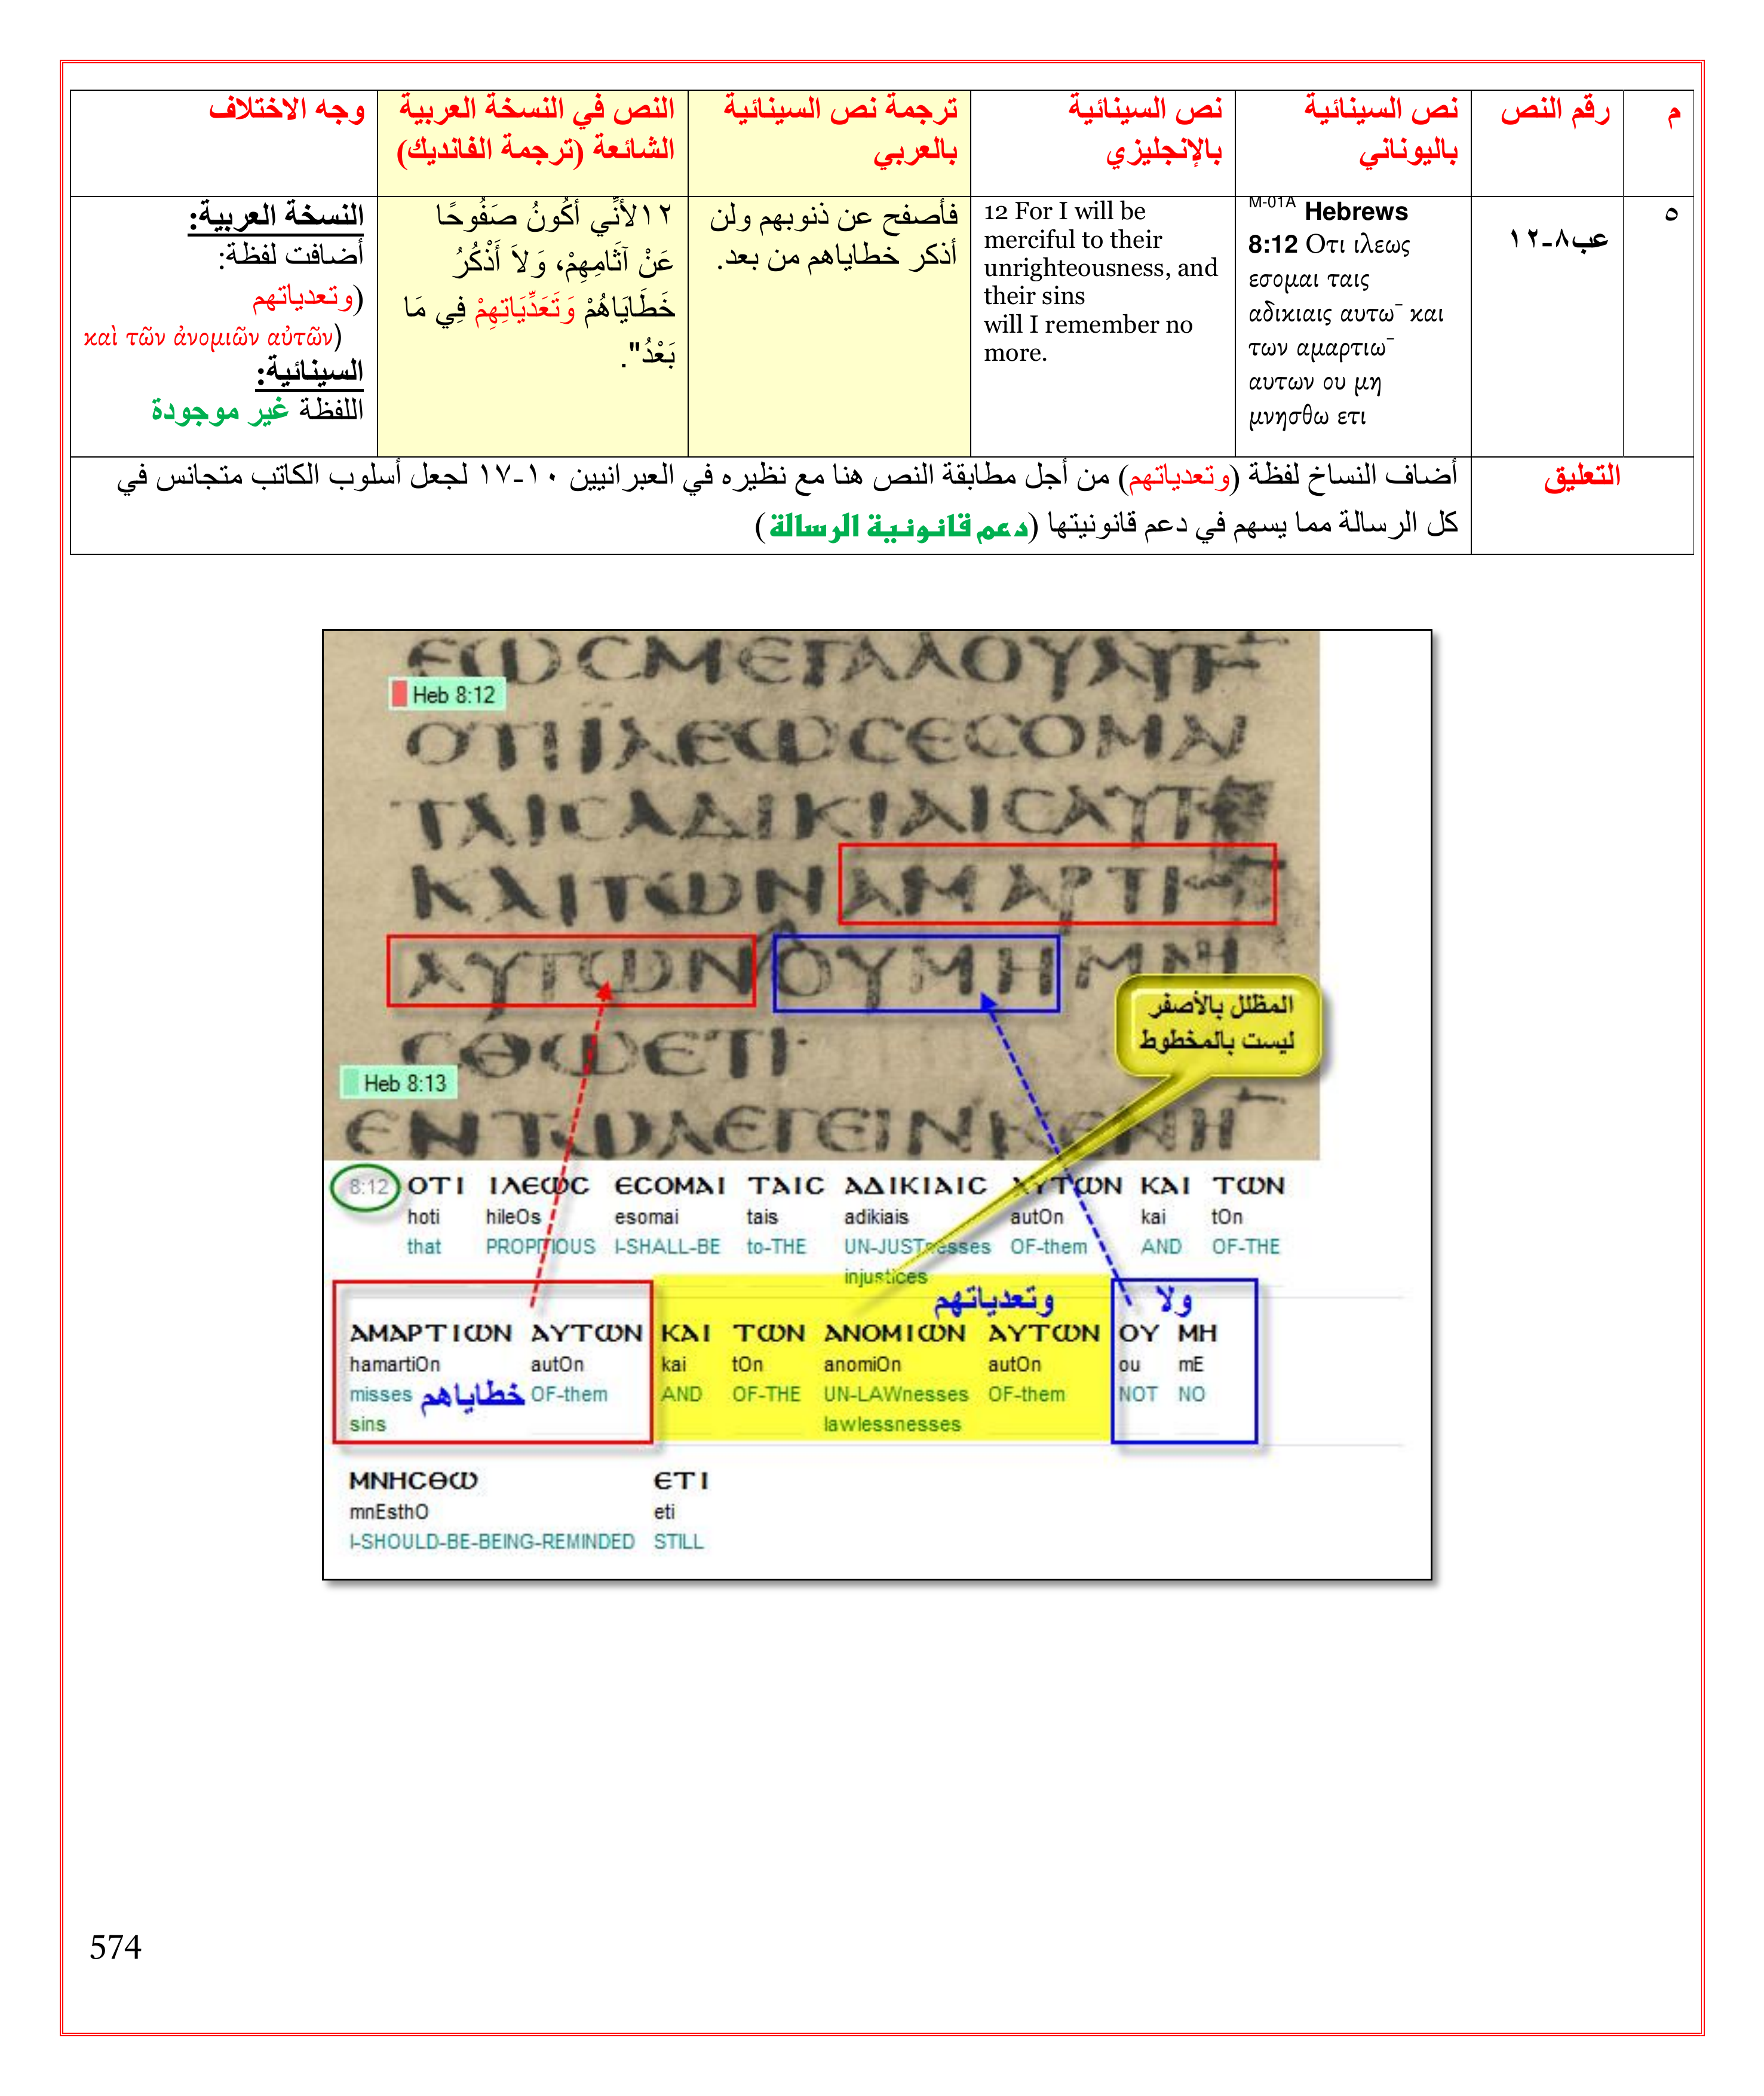 م
رقم النص
نص السينائية
باليوناني
نص السينائية
بالإنجليزي
ترجمة نص السينائية
بالعربي
النص في النسخة العربية
الشائعة (ترجمة الفانديك)
وجه الاختلاف
٥
عب٨-١٢
M-01A Hebrews
8:12 Οτι ιλεως
εσομαι ταις
αδικιαις αυτω¯ και
των αμαρτιω¯
αυτων ου μη
μνησθω ετι
12 For I will be
merciful to their
unrighteousness, and
their sins
will I remember no
more.
فأصفح عن ذنوبهم ولن
أذكر خطاياهم من بعد.
١٢لأَنِّي أَكُونُ صَفُوحًا
عَنْ آثَامِهِمْ، وَلاَ أَذْكُرُ
خَطَايَاهُمْ وَتَعَدِّيَاتِهِمْ فِي مَا
بَعْدُ".
النسخة العربية:
أضافت لفظة:
(وتعدياتهم
καὶ τῶν ἀνομιῶν αὐτῶν)
السينائية:
اللفظة غير موجودة
التعليق
أضاف النساخ لفظة (وتعدياتهم) من أجل مطابقة النص هنا مع نظيره في العبرانيين ١٠-١٧ لجعل أسلوب الكاتب متجانس في
كل الرسالة مما يسهم في دعم قانونيتها (دعم قانونية الرسالة)
ΕΩϹΜΕΓΑΛΟΥΑΥΤ
Heb 8:12
ΟΤΙΪΛΕΩϹΕϹΟΜΑΙ
ΤΑΙϹΑΔΙΚΙΑΙϹΑΥΤ
ΚΑΙΤΩΝΑΜΑΡΤΙ
ΑΥΤΩΝΟΥΜΗΜΝΗ
ϹΘΩΕΤΙ·
المظلل بالأصفر
ليست بالمخطوط
Heb 8:13
ΕΝΤΩΛΕΓΕΙΝΚΕΝΗ
8:12 ΟΤΙ ΙΛΕΩϹ ΕϹΟΜΑΙ ΤΑΙϹ ΑΔΙΚΙΑΙϹ ΑΥΤΩΝ ΚΑΙ ΤΩΝ
hoti hileOs esomai tais adikiais autOn kai tOn
that PROPITIOUS I-SHALL-BE to-THE UN-JUSTnesses OF-them AND OF-THE
injustices
وتعدياتهم ولا
ΑΜΑΡΤΙΩΝ ΑΥΤΩΝ ΚΑΙ ΤΩΝ ΑΝΟΜΙΩΝ ΑΥΤΩΝ ΟΥ ΜΗ
hamartiOn autOn kai tOn anomiOn autOn ou mE
misses خطاياهم OF-them AND OF-THE UN-LAWnesses OF-them NOT NO
sins lawlessnesses
ΜΝΗϹΘΩ ΕΤΙ
mnEsthO eti
I-SHOULD-BE-BEING-REMINDED STILL
574